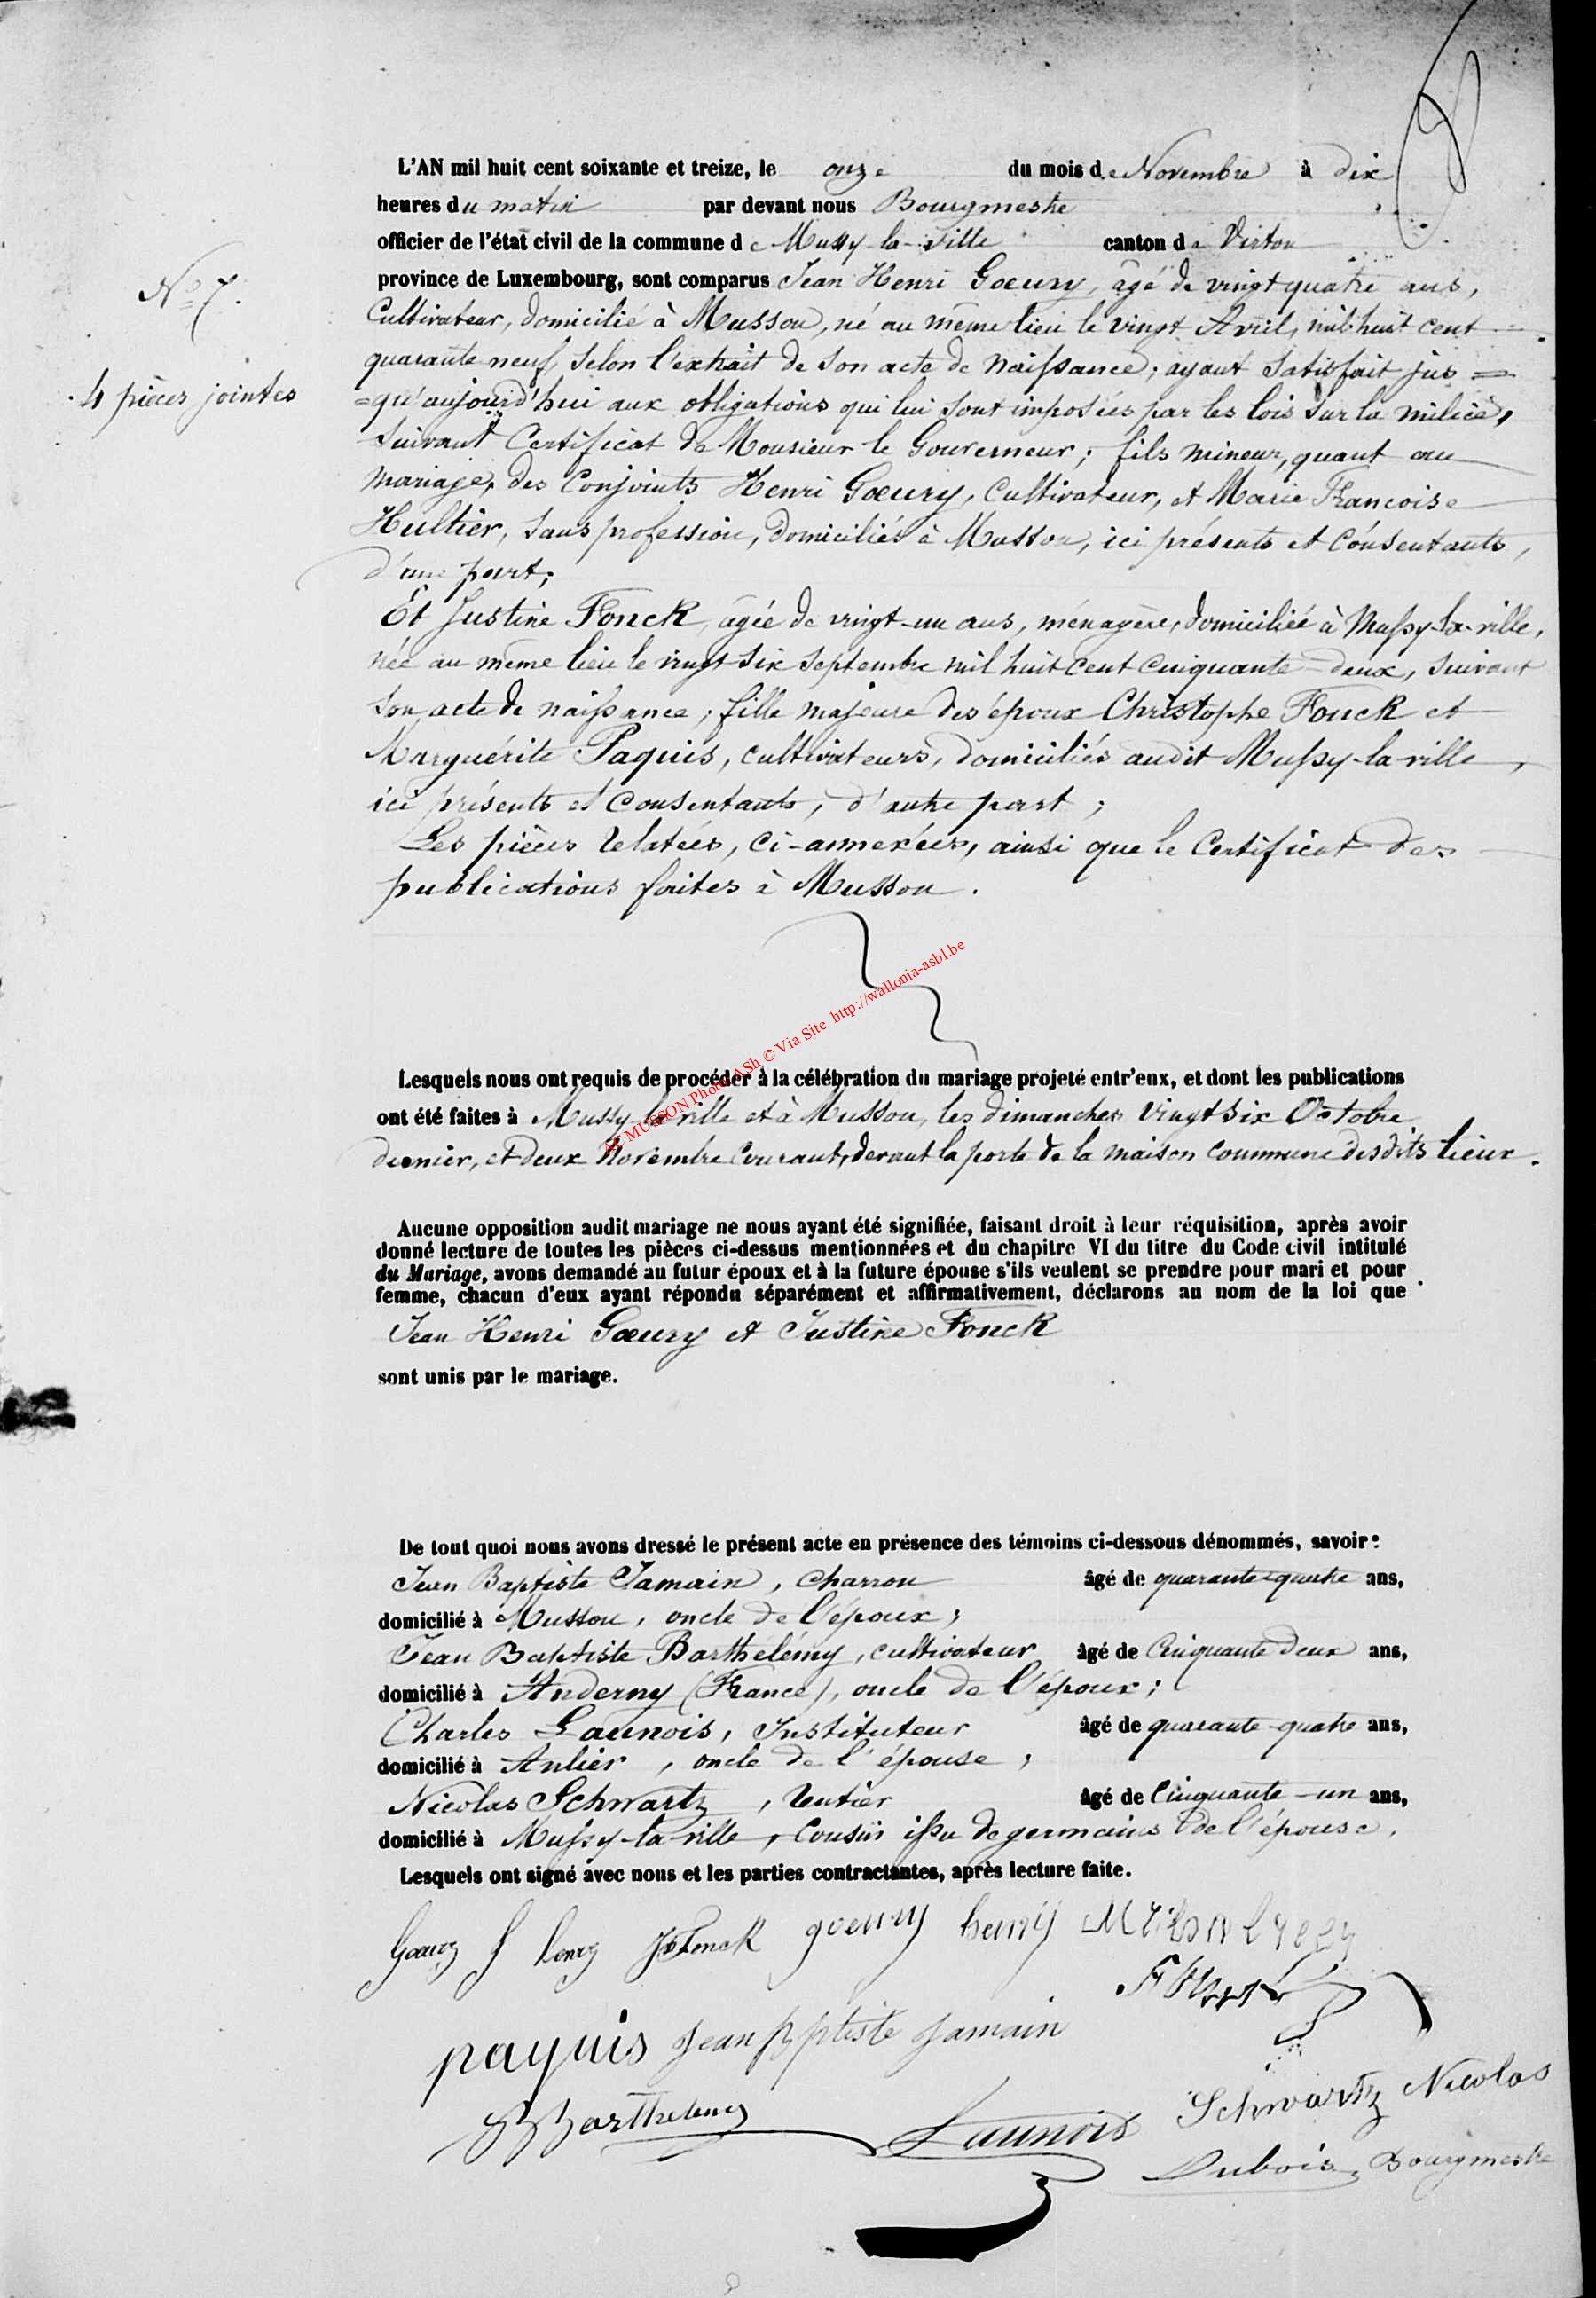 L'AN mil huit cent soixante et treize, le onze du mois de Novembre à dix
heures du matin par devant nous Bourgmestre
officier de l'état civil de la commune de Mussy-la-ville canton de Virton
province de Luxembourg, sont comparus Jean Henri Goeury, âgé de vingt quatre ans,
N° 7.
Cultivateur, domicilié à Musson, né au même lieu le vingt Avril, mil huit cent
quarante neuf, selon l'extrait de son acte de naissance; ayant satisfait jus=
4 pièces jointes
=qu'aujourd'hui aux obligations qui lui sont imposées par les lois sur la milice,
suivant Certificat de Monsieur le Gouverneur; fils mineur, quant au
mariage, des Conjoints Henri Goeury, Cultivateur, et Marie Francoise
Hultier, sans profession, domiciliés à Musson, ici présents et consentants,
d'une part;
Et Justine Fonck, âgée de vingt-un ans, ménagère, domiciliée à Mussy-la-ville,
née au même lieu le vingt six septembre mil huit cent cinquante-deux, suivant
son acte de naissance; fille majeure des époux Christophe Fonck et
Marguérite Paquis, cultivateurs, domiciliés audit Mussy-la-ville,
ici présents et consentants, d'autre part;
Les pièces relatées, ci-annexées, ainsi que le Certificat des
publications faites à Musson.
AC MUSSON Photo ASh © Via Site http://wallonia-asbl.be
Lesquels nous ont requis de procéder à la célébration du mariage projeté entr'eux, et dont les publications
ont été faites à Mussy-la-ville et à Musson, les dimanches vingt six Octobre
dernier, et deux Novembre Courant, devant la porte de la maison commune desdits lieux.
Aucune opposition audit mariage ne nous ayant été signifiée, faisant droit à leur réquisition, après avoir
donné lecture de toutes les pièces ci-dessus mentionnées et du chapitre VI du titre du Code civil intitulé
du Mariage, avons demandé au futur époux et à la future épouse s'ils veulent se prendre pour mari et pour
femme, chacun d'eux ayant répondu séparément et affirmativement, déclarons au nom de la loi que
Jean Henri Goeury et Justine Fonck
sont unis par le mariage.
De tout quoi nous avons dressé le présent acte en présence des témoins ci-dessous dénommés, savoir:
Jean Baptiste Jamain, charron âgé de quarante-quatre ans,
domicilié à Musson, oncle de l'époux;
Jean Baptiste Barthelémy, cultivateur âgé de Cinquante deux ans,
domicilié à Anderny (France), oncle de l'époux;
Charles Launois, Instituteur âgé de quarante-quatre ans,
domicilié à Anlier, oncle de l'épouse,
Nicolas Schwartz, rentier âgé de Cinquante-un ans,
domicilié à Mussy-la-ville, cousin issu de germains de l'épouse.
Lesquels ont signé avec nous et les parties contractantes, après lecture faite.
Goeury J henry J Fonck goeury henry
paquis Jean Bptiste Jamain
JBBarthelemy Launois Schwartz Nicolas
Dubois, Bourgmestre